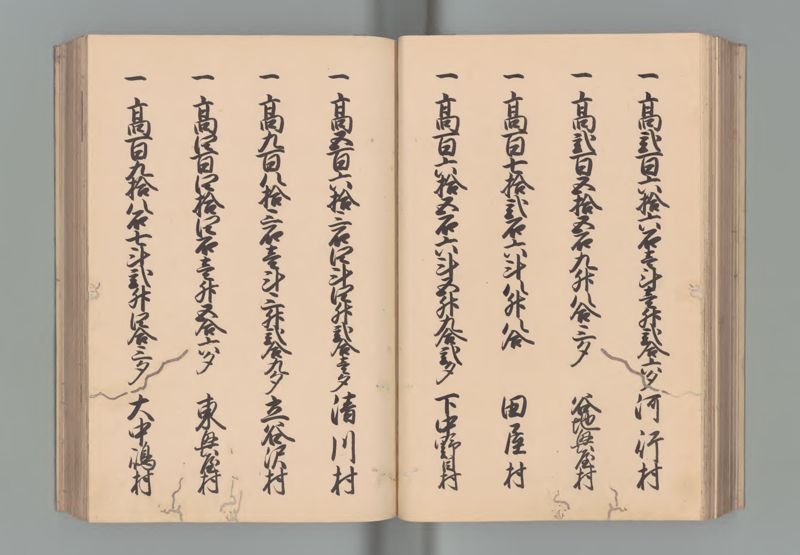 一高弐百六拾六石壱斗壱升弐合六夕河行村
一高弐百五拾五石九升八合三夕谷地興屋村
一高百七拾弐石六斗八升八合田屋村
一高百六拾五石六斗五升九合弐夕下中野目村
一高五百六拾三石四斗四升弐合壱夕清川村
一高九百八拾三石壱斗三升弐合九夕立谷沢村
一高四百四拾四石壱升五合六夕東興屋村
一高百九拾八石七斗弐升四合三夕大中嶋村